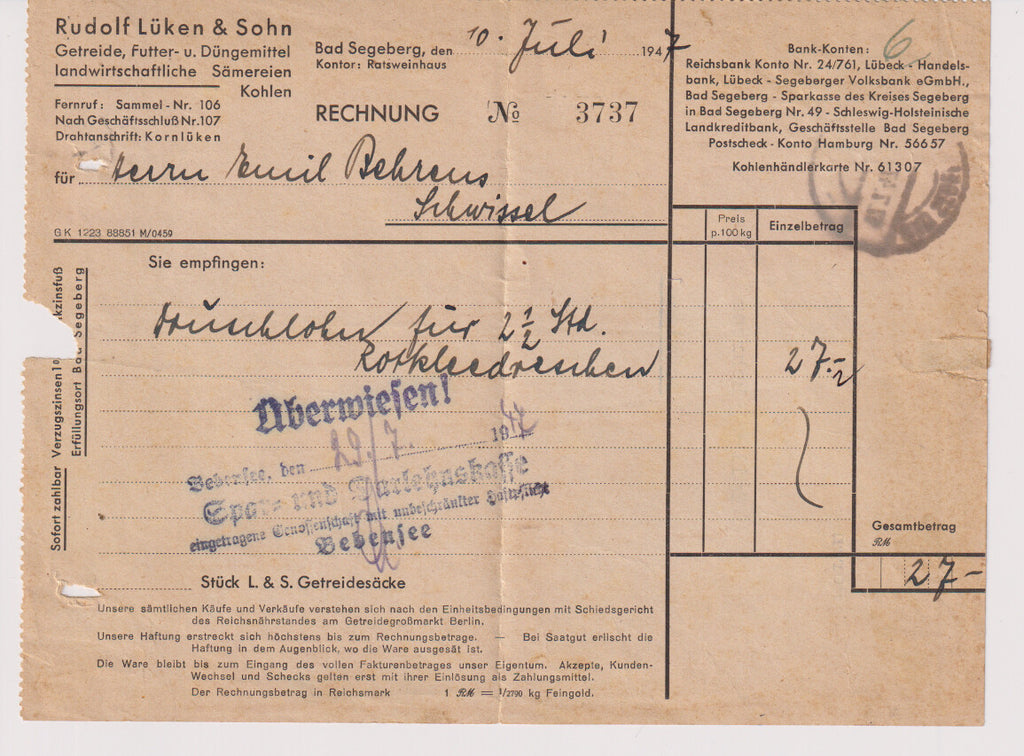 Rudolf Lüken & Sohn
Getreide, Futter- u. Düngemittel
landwirtschaftliche Sämereien
Kohlen
Fernruf: Sammel-Nr. 106
Nach Geschäftsschluß Nr. 107
Drahtanschrift: Kornlüken
Bad Segeberg, den 10. Juli 1947
Kontor: Ratsweinhaus
RECHNUNG № 3737
6
Bank-Konten:
Reichsbank Konto Nr. 24/761, Lübeck - Handels-
bank, Lübeck - Segeberger Volksbank eGmbH.,
Bad Segeberg - Sparkasse des Kreises Segeberg
in Bad Segeberg Nr. 49 - Schleswig-Holsteinische
Landkreditbank, Geschäftsstelle Bad Segeberg
Postscheck-Konto Hamburg Nr. 56657
Kohlenhändlerkarte Nr. 61307
für Herrn Emil Behrens
Schwissel
GK 1223 88851 M/0459
Preis
p.100 kg
Einzelbetrag
Sie empfingen:
Druschlohn für 2½ Std.
Rotkleedreschen 27.-
Überwiesen!
29/7. 1947
Bebensee, den
Spar- und Darlehnskasse
eingetragene Genossenschaft mit unbeschränkter Haftpflicht
Bebensee
Sofort zahlbar Verzugszinsen 1%
kzinsfuß
Erfüllungsort Bad Segeberg
Gesamtbetrag
RM
27-
Stück L. & S. Getreidesäcke
Unsere sämtlichen Käufe und Verkäufe verstehen sich nach den Einheitsbedingungen mit Schiedsgericht
des Reichsnährstandes am Getreidegroßmarkt Berlin.
Unsere Haftung erstreckt sich höchstens bis zum Rechnungsbetrage. — Bei Saatgut erlischt die
Haftung in dem Augenblick, wo die Ware ausgesät ist.
Die Ware bleibt bis zum Eingang des vollen Fakturenbetrages unser Eigentum. Akzepte, Kunden-
Wechsel und Schecks gelten erst mit ihrer Einlösung als Zahlungsmittel.
Der Rechnungsbetrag in Reichsmark 1 RM = 1/2790 kg Feingold.